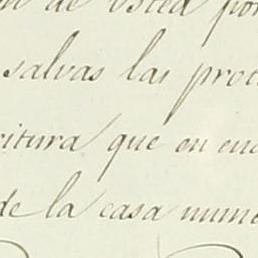 de Usted por
salvas las prot
critura que en cua
de la casa nume